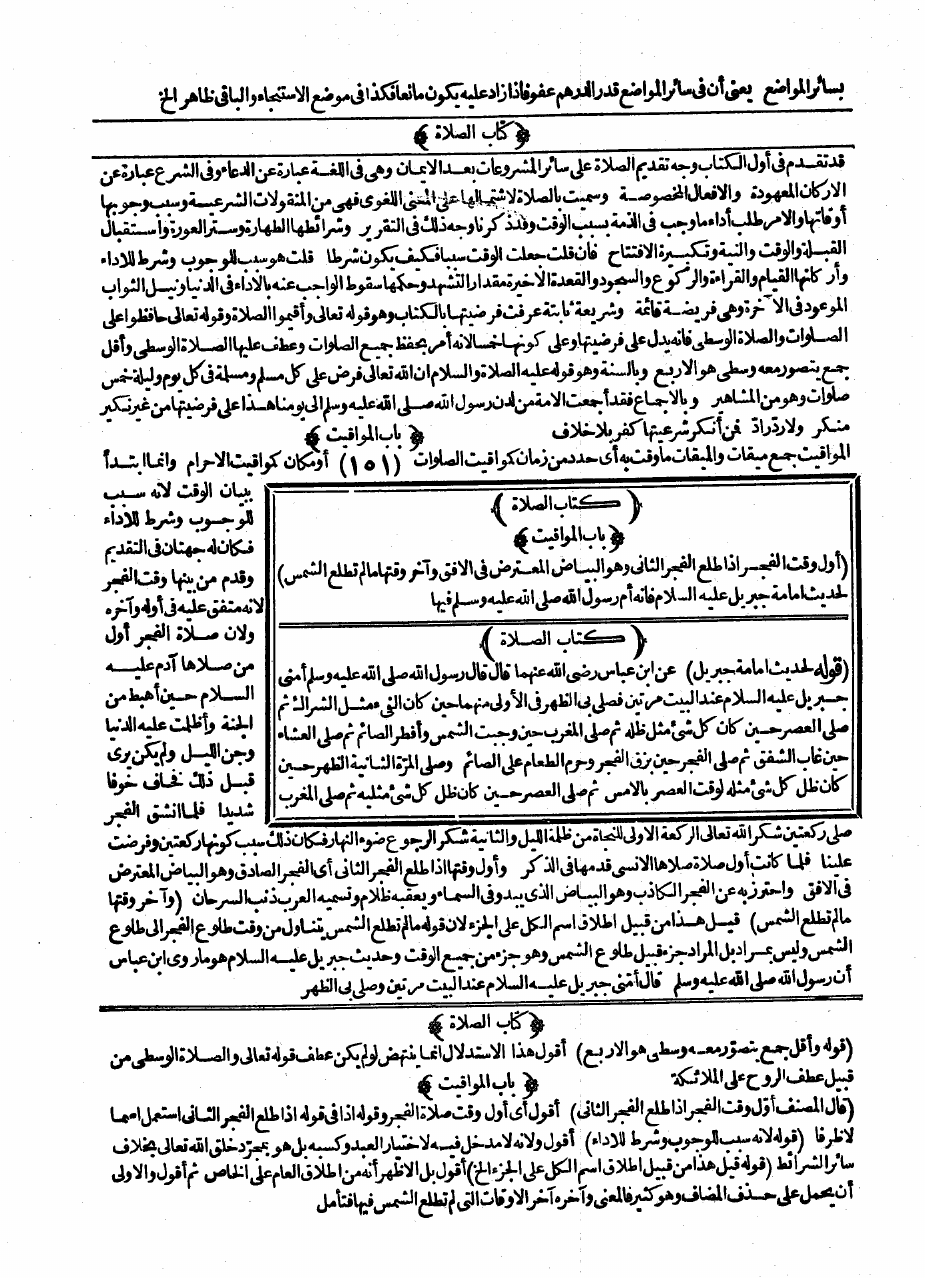 بسائر المواضع يعنى أن فى سائر المواضع قدر الدرهم عفو فاذا زاد عليه يكون مانعا فكذا فى موضع الاستنجاء والباقى ظاهر الخ
﴿ كتاب الصلاة ﴾
قد تقدم فى أول الكتاب وجه تقديم الصلاة على سائر المشروعات بعد الايمان وهى فى اللغة عبارة عن الدعاء وفى الشرع عبارة عن
الاركان المعهودة والافعال المخصوصة وسميت بالصلاة لاشتمالها على المعنى اللغوى فهى من المنقولات الشرعية وسبب وجوبها
أوقاتها والامر طلب أداء ما وجب فى الذمة بسبب الوقت وقد ذكرنا وجه ذلك فى التقرير وشرائطها الطهارة وستر العورة واستقبال
القبلة والوقت والنية وتكبيرة الافتتاح فان قلت جعلت الوقت سببا فكيف يكون شرطا قلت هو سبب للوجوب وشرط للاداء
وأركانها القيام والقراءة والركوع والسجود والقعدة الاخيرة مقدار التشهد وحكمها سقوط الواجب عنه بالاداء فى الدنيا ونيل الثواب
الموعود فى الآخرة وهى فريضة قائمة وشريعة ثابتة عرفت فرضيتها بالكتاب وهو قوله تعالى وأقيموا الصلاة وقوله تعالى حافظوا على
الصلوات والصلاة الوسطى فانه يدل على فرضيتها وعلى كونها خمسا لانه أمر بحفظ جميع الصلوات وعطف عليها الصلاة الوسطى وأقل
جمع يتصور معه وسطى هو الاربع وبالسنة وهو قوله عليه الصلاة والسلام ان الله تعالى فرض على كل مسلم ومسلمة فى كل يوم وليلة خمس
صلوات وهو من المشاهير وبالاجماع فقد أجمعت الامة من لدن رسول الله صلى الله عليه وسلم الى يومنا هذا على فرضيتها من غير نكير
منكر ولا رد راد فمن أنكر شرعيتها كفر بلا خلاف ﴿ باب المواقيت ﴾
المواقيت جمع ميقات والميقات ما وقت به أى حدد من زمان كمواقيت الصلوات (١٥١) أو مكان كمواقيت الاحرام وانما ابتدأ
بيان الوقت لانه سبب
للوجوب وشرط للاداء
فكان له جهتان فى التقديم
وقدم من بينها وقت الفجر
لانه متفق عليه فى أوله وآخره
ولان صلاة الفجر أول
من صلاها آدم عليه
السلام حين أهبط من
الجنة وأظلمت عليه الدنيا
وجن الليل ولم يكن يرى
قبل ذلك فخاف خوفا
شديدا فلما انشق الفجر
﴿ كتاب الصلاة ﴾
﴿ باب المواقيت ﴾
(أول وقت الفجر اذا طلع الفجر الثانى وهو البياض المعترض فى الافق وآخر وقتها مالم تطلع الشمس)
لحديث امامة جبريل عليه السلام فانه أم رسول الله صلى الله عليه وسلم فيها
﴿ كتاب الصلاة ﴾
(قوله لحديث امامة جبريل) عن ابن عباس رضى الله عنهما قال قال رسول الله صلى الله عليه وسلم أمنى
جبريل عليه السلام عند البيت مرتين فصلى بى الظهر فى الأولى منهما حين كان الفىء مثل الشراك ثم
صلى العصر حين كان كل شئ مثل ظله ثم صلى المغرب حين وجبت الشمس وأفطر الصائم ثم صلى العشاء
حين غاب الشفق ثم صلى الفجر حين برق الفجر وحرم الطعام على الصائم وصلى المرّة الثانية الظهر حين
كان ظل كل شئ مثله لوقت العصر بالامس ثم صلى العصر حين كان ظل كل شئ مثليه ثم صلى المغرب
صلى ركعتين شكر الله تعالى الركعة الاولى للنجاة من ظلمة الليل والثانية شكر الرجوع ضوء النهار فكان ذلك سبب كونها ركعتين وفرضت
علينا فلما كانت أول صلاة صلاها الانسى قدمها فى الذكر وأول وقتها اذا طلع الفجر الثانى أى الفجر الصادق وهو البياض المعترض
فى الافق واحترز به عن الفجر الكاذب وهو البياض الذى يبدو فى السماء ويعقبه ظلام وتسميه العرب ذنب السرحان (وآخر وقتها
مالم تطلع الشمس) قيل هذا من قبيل اطلاق اسم الكل على الجزء لان قوله مالم تطلع الشمس يتناول من وقت طلوع الفجر الى طلوع
الشمس وليس بمراد بل المراد جزء قبيل طلوع الشمس وهو جزء من جميع الوقت وحديث جبريل عليه السلام هو ما روى ابن عباس
أن رسول الله صلى الله عليه وسلم قال أمنى جبريل عليه السلام عند البيت مرتين وصلى بى الظهر
﴿ كتاب الصلاة ﴾
(قوله وأقل جمع يتصوّر معه وسطى هو الاربع) أقول هذا الاستدلال انما ينتهض لو لم يكن عطف قوله تعالى والصلاة الوسطى من
قبيل عطف الروح على الملائكة ﴿ باب المواقيت ﴾
(قال المصنف أوّل وقت الفجر اذا طلع الفجر الثانى) أقول أى أول وقت صلاة الفجر وقوله اذا فى قوله اذا طلع الفجر الثانى استعمل اسما
لا ظرفا (قوله لانه سبب للوجوب وشرط للاداء) أقول ولانه لا مدخل فيه لاختيار العبد وكسبه بل هو بمجرّد خلق الله تعالى بخلاف
سائر الشرائط (قوله قيل هذا من قبيل اطلاق اسم الكل على الجزء الخ) أقول بل الاظهر أنه من اطلاق العام على الخاص ثم أقول والاولى
أن يحمل على حذف المضاف وهو كثير فالمعنى وآخره آخر الاوقات التى لم تطلع الشمس فيها فتأمل